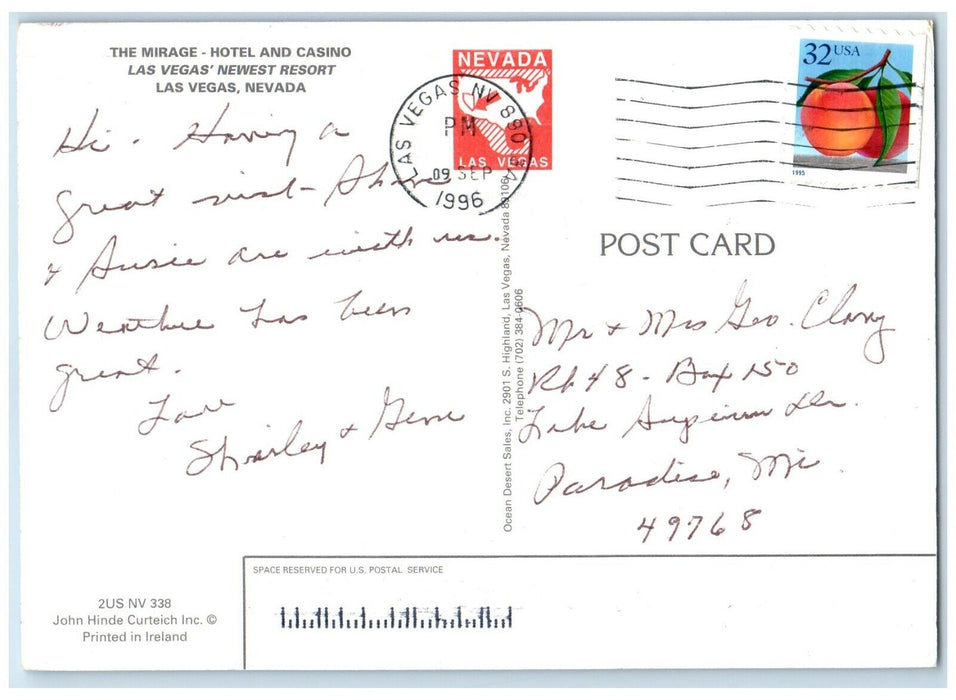 THE MIRAGE - HOTEL AND CASINO
LAS VEGAS' NEWEST RESORT
LAS VEGAS, NEVADA
Hi. Having a
great visit -
& Susie are with us.
Weather has been
great.
Love
Shirley & Gene
NEVADA
LAS VEGAS
LAS VEGAS NV 890
PM
09 SEP
1996
32 USA
1995
POST CARD
Mr & Mrs Geo. Clary
Rt# 48 - Box 150
Lake Superior Dr.
Paradise, Mi.
49768
Ocean Desert Sales, Inc. 2901 S. Highland, Las Vegas, Nevada 89106
Telephone (702) 384-0606
SPACE RESERVED FOR U.S. POSTAL SERVICE
2US NV 338
John Hinde Curteich Inc. ©
Printed in Ireland